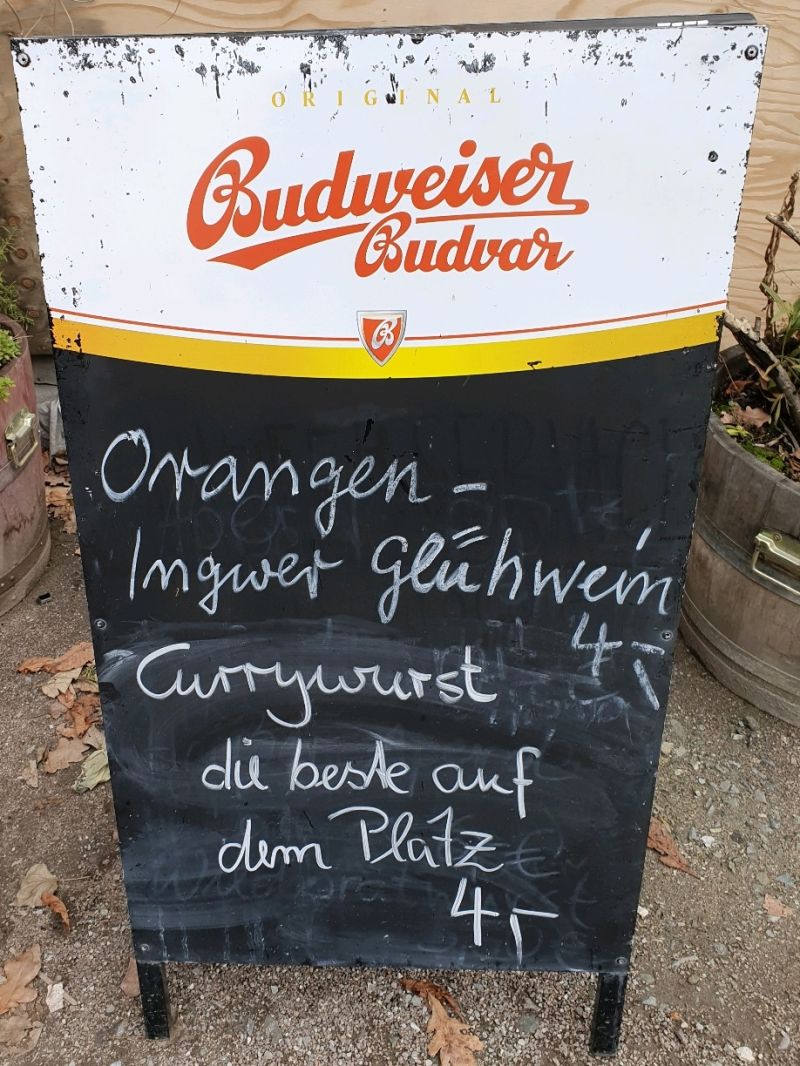 ORIGINAL
Budweiser
Budvar
B
Orangen-
Ingwer Glühwein
4,-
Currywurst
die beste auf
dem Platz
4,-